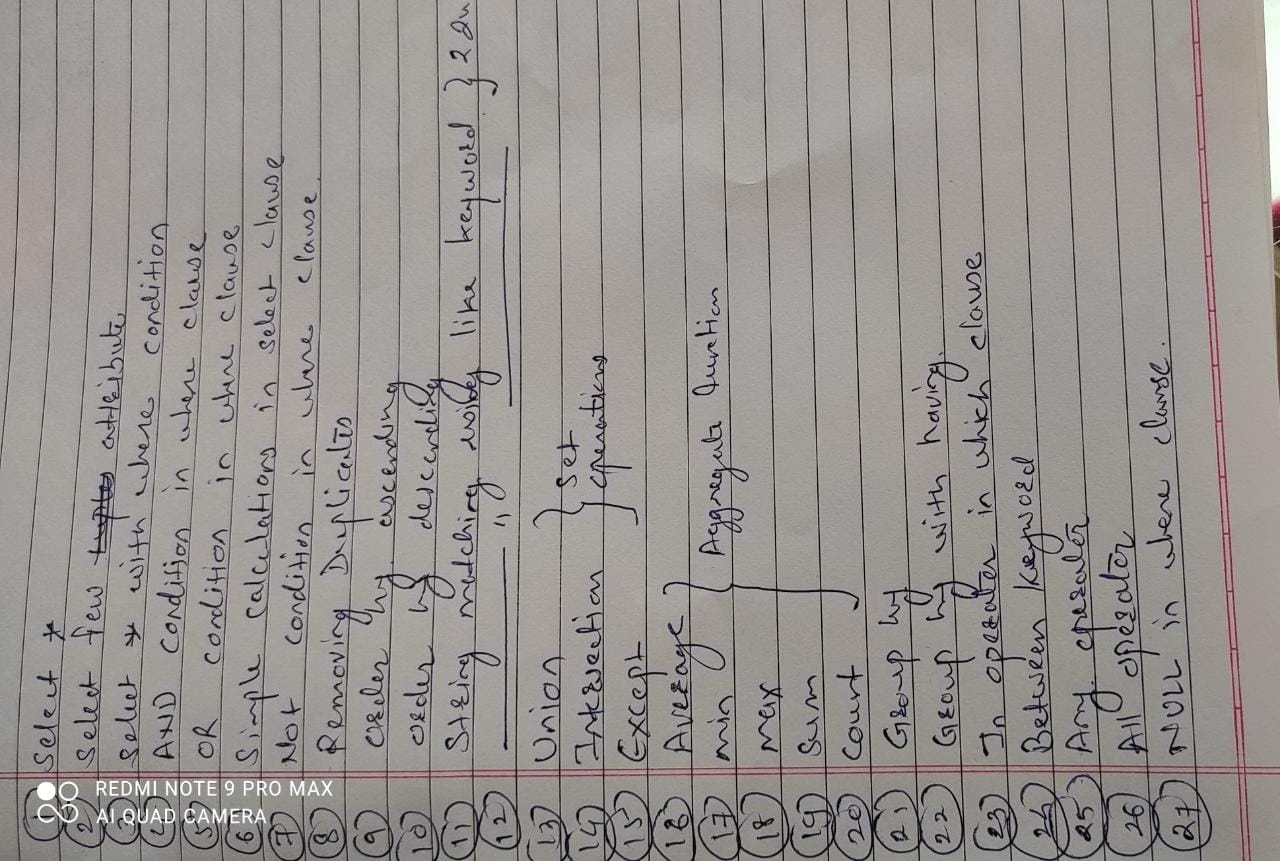 1 Select *
2 Select few tuples attribute
3 Select * with where condition
4 AND condition in where clause
5 OR condition in where clause
6 Simple calculations in select clause
7 Not condition in where clause.
8 Removing Duplicates
9 order by ascending
10 order by descending
11 String matching using like keyword } 2 Qu
12 —— " ——
13 Union
14 Intersection } Set operations
15 Except
16 Average
17 min } Aggregate function
18 Max
19 Sum
20 Count
21 Group by
22 Group by with having.
23 In operator in which clause
24 Between Keyword
25 Any operator
26 All operator
27 NULL in where clause.
REDMI NOTE 9 PRO MAX
AI QUAD CAMERA